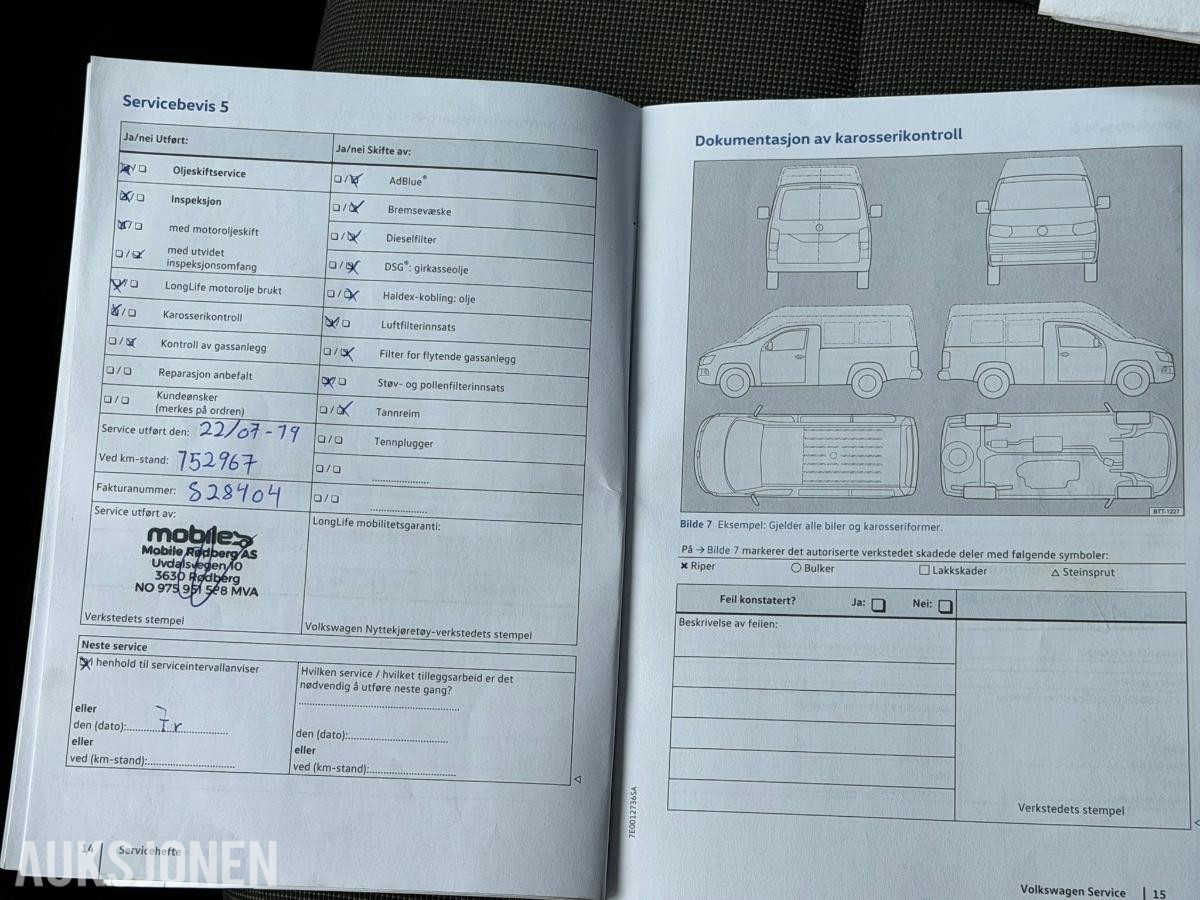 Servicebevis 5
Ja/nei Utført:
Oljeskiftservice
Inspeksjon
med motoroljeskift
med utvidet
inspeksjonsomfang
LongLife motorolje brukt
Karosserikontroll
Kontroll av gassanlegg
Reparasjon anbefalt
Kundeønsker
(merkes på ordren)
Ja/nei Skifte av:
AdBlue®
Bremsevæske
Dieselfilter
DSG®: girkasseolje
Haldex-kobling: olje
Luftfilterinnsats
Filter for flytende gassanlegg
Støv- og pollenfilterinnsats
Tannreim
Tennplugger
Service utført den: 22/07-19
Ved km-stand: 152967
Fakturanummer: 528404
Service utført av:
mobile
Mobile Rødberg AS
Uvdalsvegen 10
3630 Rødberg
NO 975 951 588 MVA
Verkstedets stempel
LongLife mobilitetsgaranti:
Volkswagen Nyttekjøretøy-verkstedets stempel
Neste service
I henhold til serviceintervallanviser
eller
den (dato):
eller
ved (km-stand):
Hvilken service / hvilket tilleggsarbeid er det
nødvendig å utføre neste gang?
den (dato):
eller
ved (km-stand):
14 Servicehefte
AUKSJONEN
Dokumentasjon av karosserikontroll
BTT-1227
Bilde 7 Eksempel: Gjelder alle biler og karosseriformer.
På → Bilde 7 markerer det autoriserte verkstedet skadede deler med følgende symboler:
× Riper ○ Bulker □ Lakkskader △ Steinsprut
Feil konstatert? Ja: Nei:
Beskrivelse av feilen:
Verkstedets stempel
7E0012736SA
Volkswagen Service 15